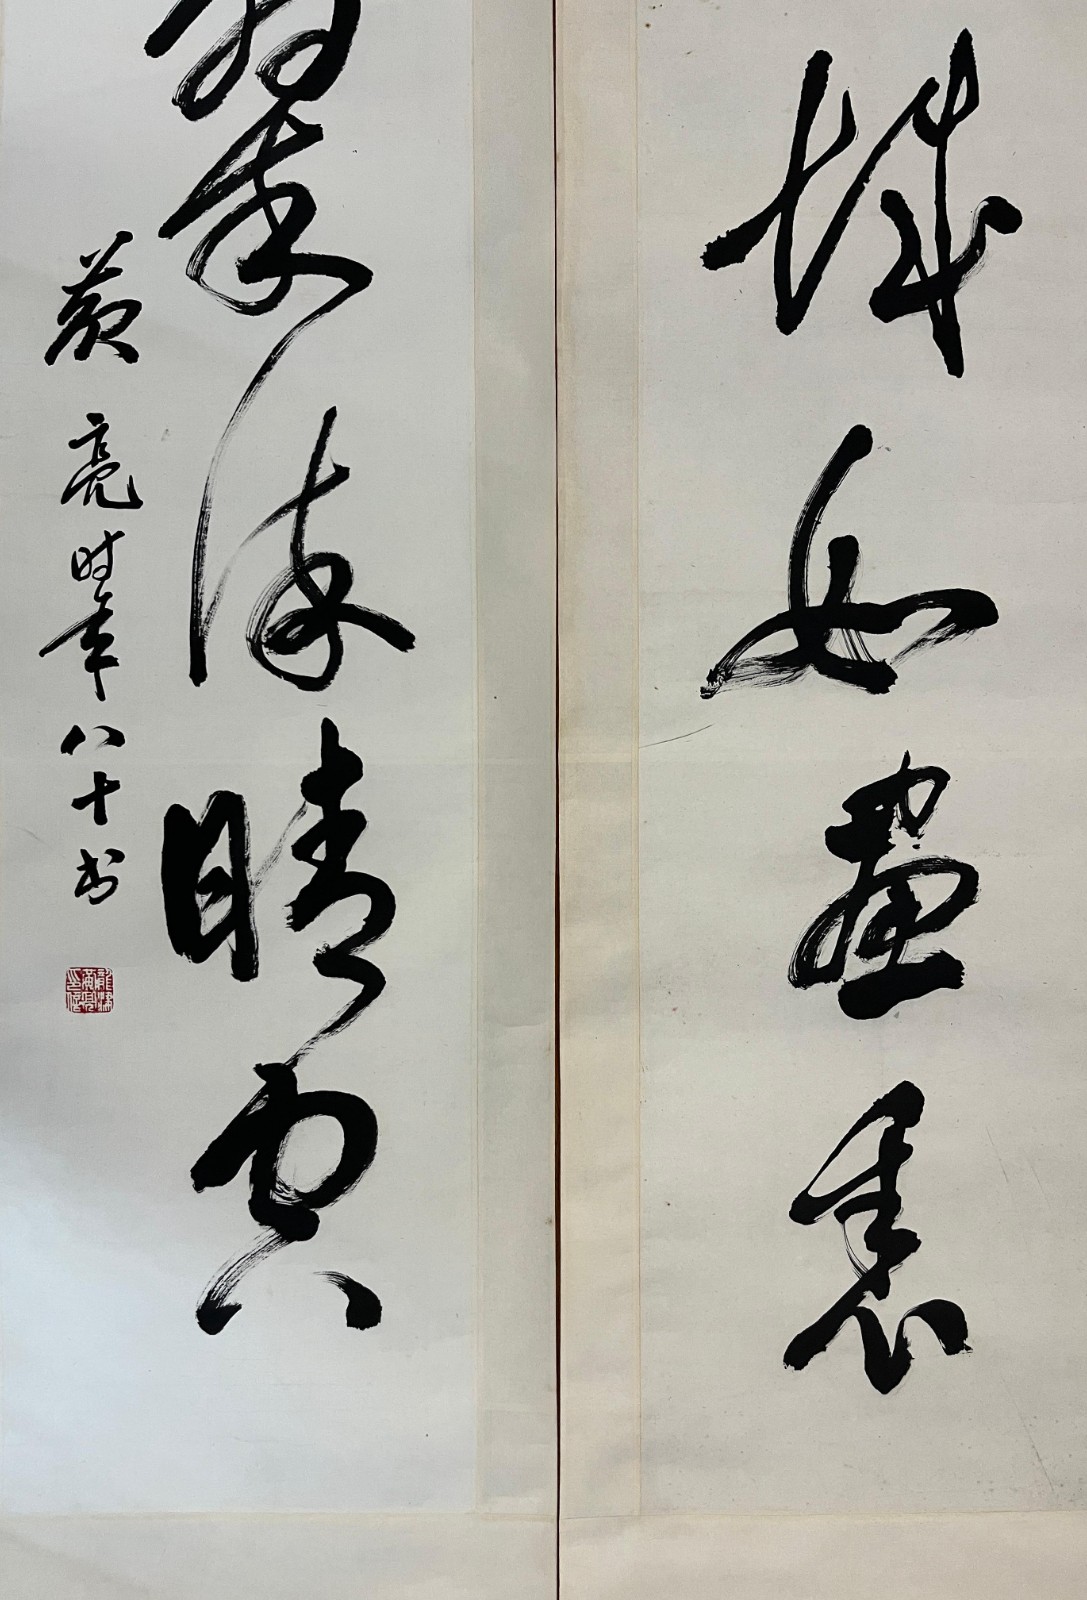 城如畫裏
翠晴空
黄亮时年八十书